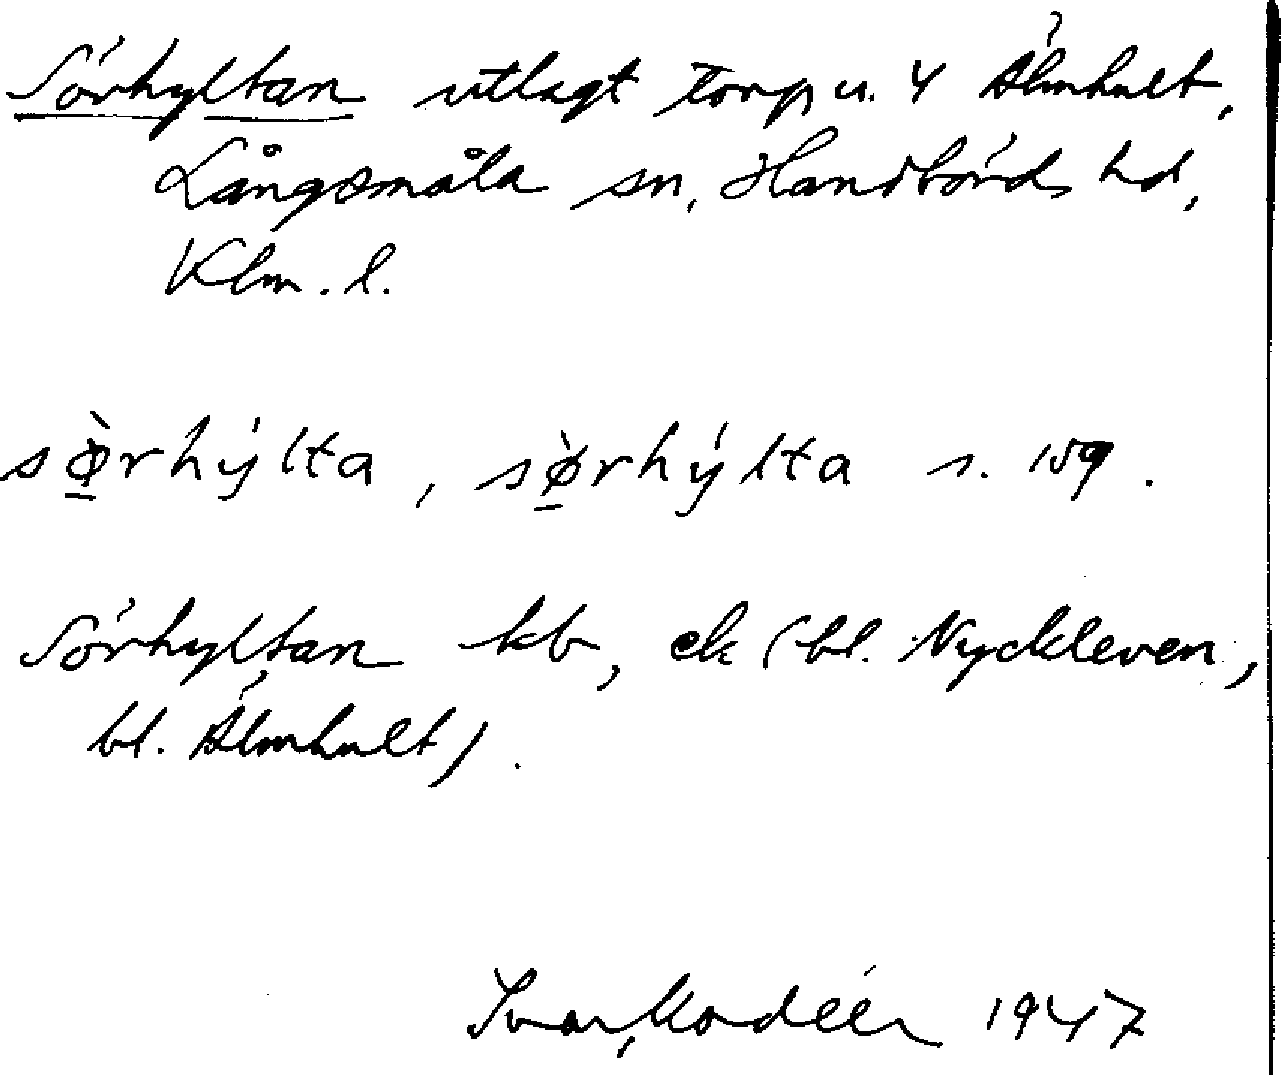 Sörhyltan utlagt torp u. 4 Älmhult,
Långsmåla sn, Handbörds hd,
Klm. l.
sø̱̀rhýlta, sø̱̀rhýlta s. 159.
Sörhyltan kb, ek (bl. Nyckleven,
bl. Älmhult).
Ivar Modéer 1947